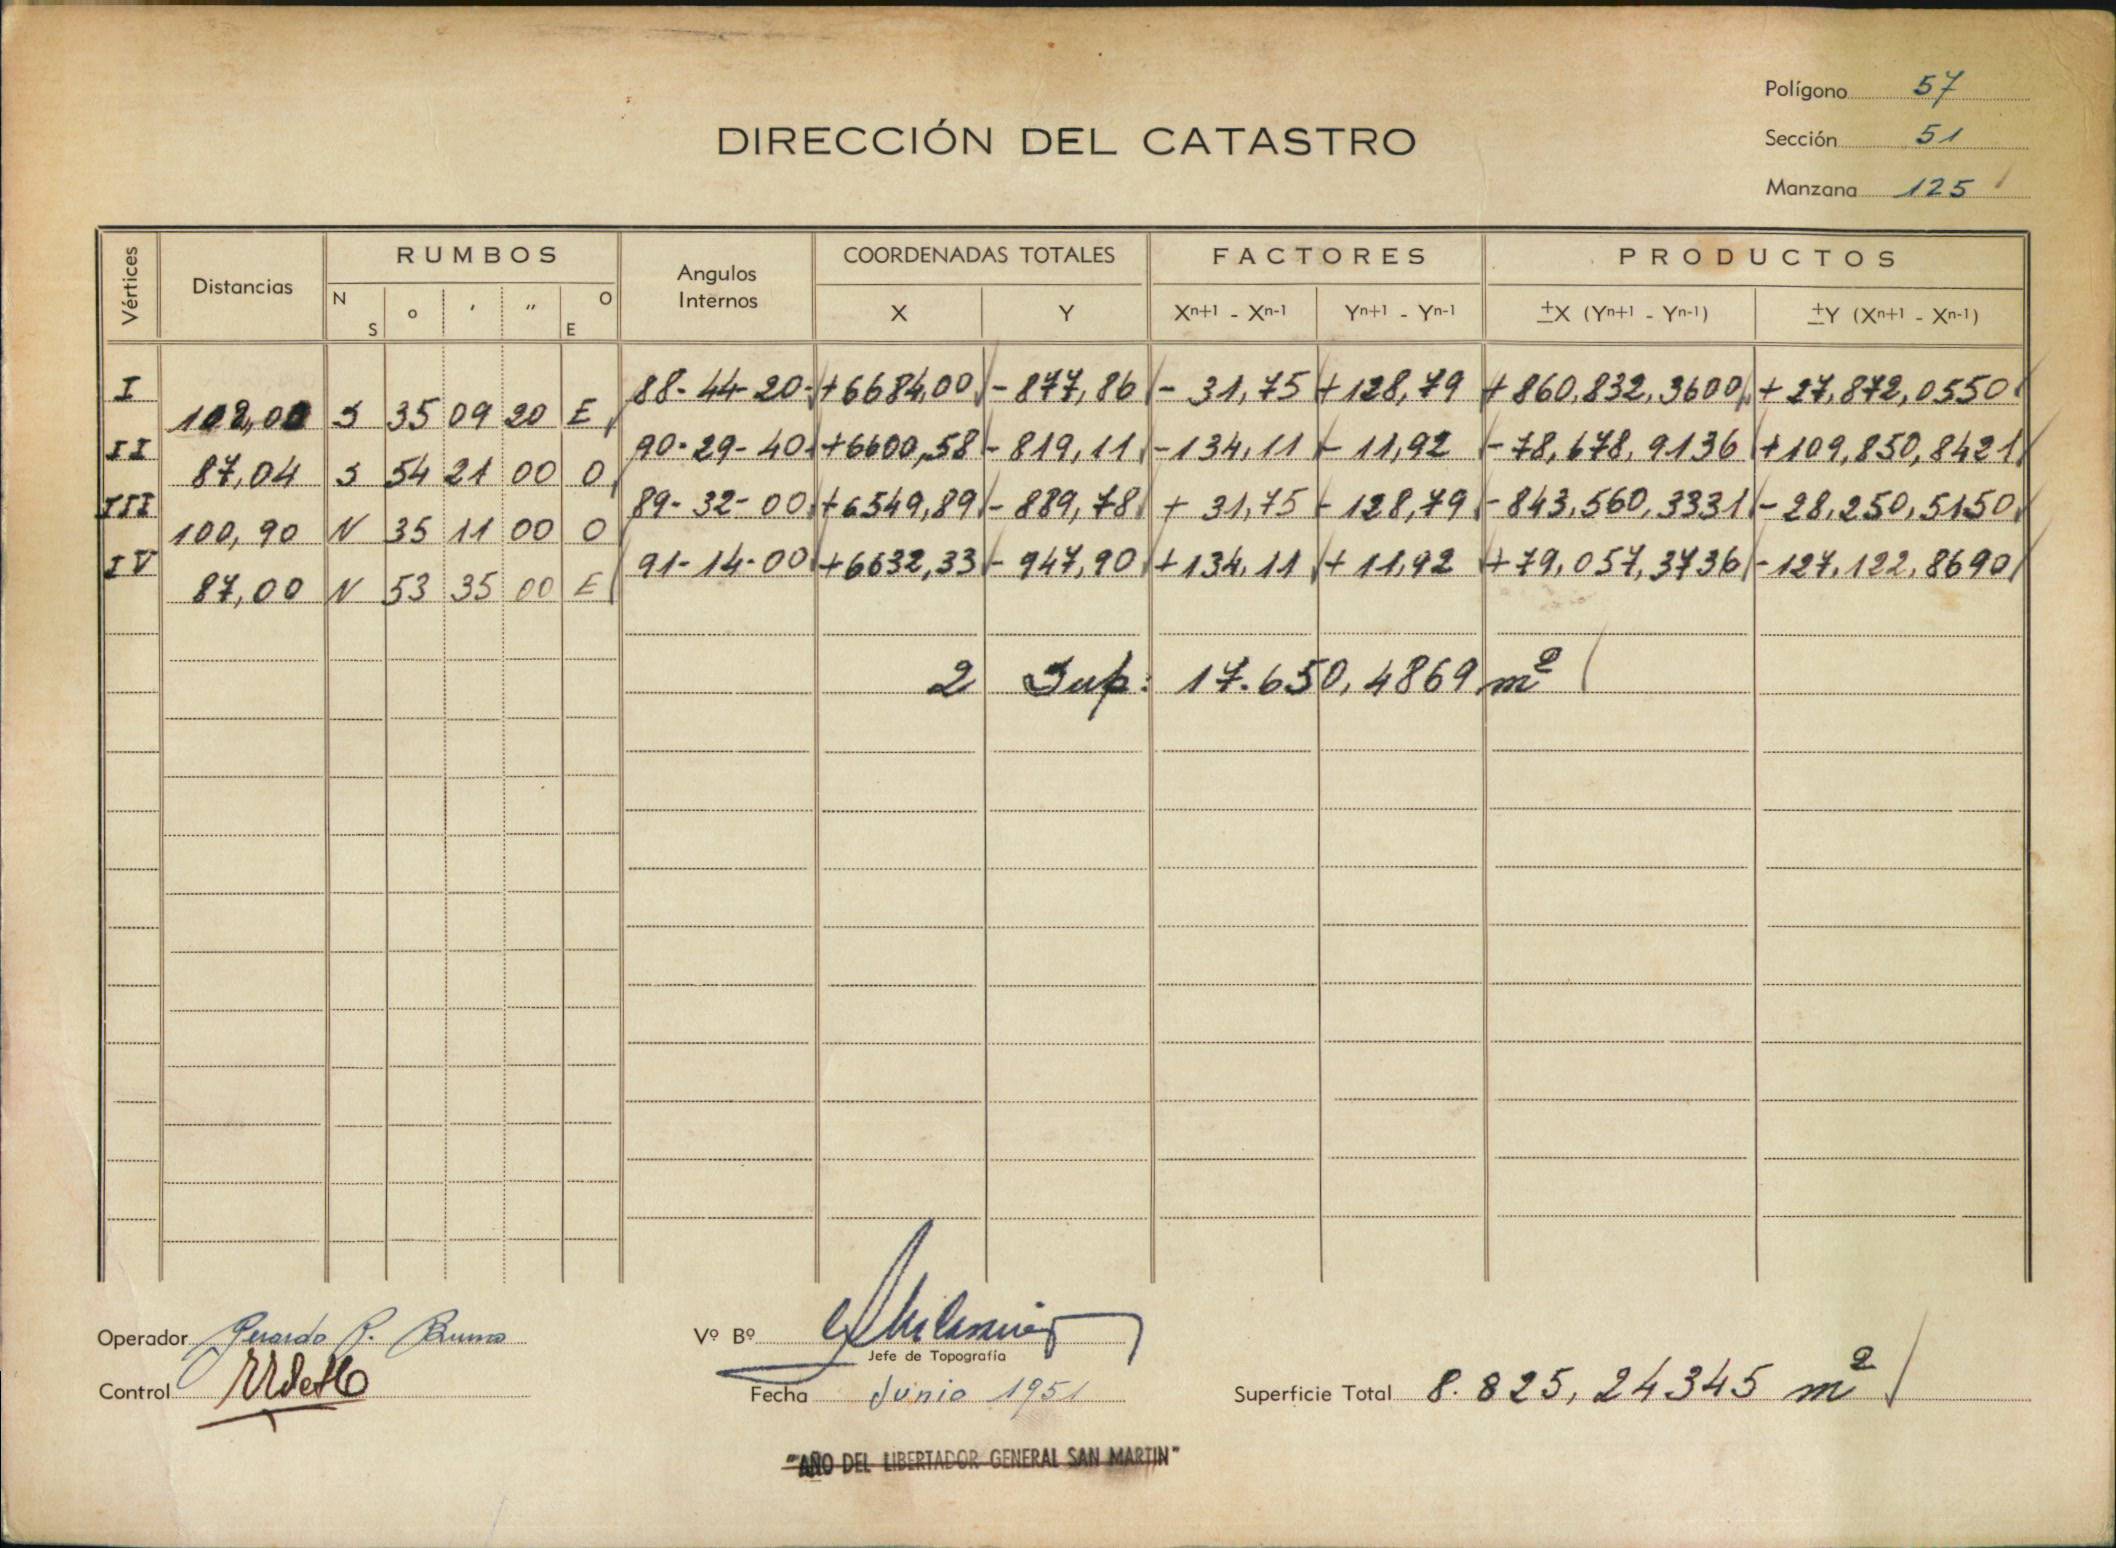 Polígono 57
DIRECCIÓN DEL CATASTRO
Sección 51
Manzana 125
Vértices Distancias RUMBOS Angulos Internos COORDENADAS TOTALES FACTORES PRODUCTOS
N S o ' " O E X Y Xn+1 - Xn-1 Yn+1 - Yn-1 ±X (Yn+1 - Yn-1) ±Y (Xn+1 - Xn-1)
I 88-44-20 +6684,00 - 877,86 - 31,75 +128,79 +860.832,3600 + 27.872,0550
102,00 S 35 09 20 E
II 90-29-40 +6600,58 - 819,11 -134,11 - 11,92 -78,678,9136 +109,850,8421
87,04 S 54 21 00 O
III 89-32-00 +6549,89 - 889,78 + 31,75 - 128,79 -843,560,3331 -28,250,5150
100,90 N 35 11 00 O
IV 91-14-00 +6632,33 - 947,90 +134,11 + 11,92 +79,057,3736 -127,122,8690
87,00 N 53 35 00 E
2 Sup: 17.650,4869 m²
Operador Gerardo P. Bruno
Vº Bº
Jefe de Topografía
Control
Fecha Junio 1951
Superficie Total 8.825,24345 m²
"AÑO DEL LIBERTADOR GENERAL SAN MARTIN"